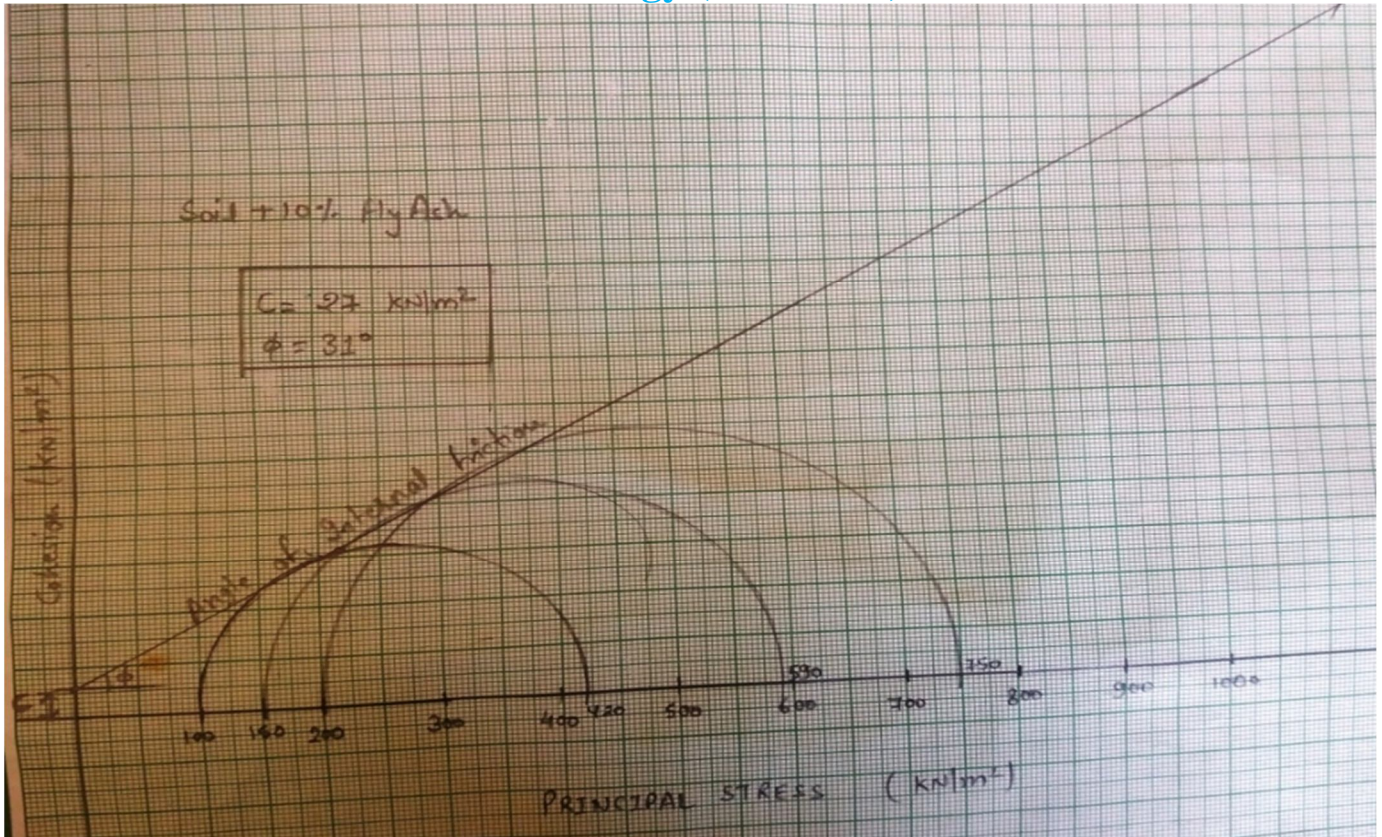 Soil + 10% fly Ach
C = 27 kN/m²
φ = 31°
Cohesion (kN/m²)
Angle of Internal friction
φ
590
750
100 150 200 300 400 420 500 600 700 800 900 1000
PRINCIPAL STRESS (kN/m²)